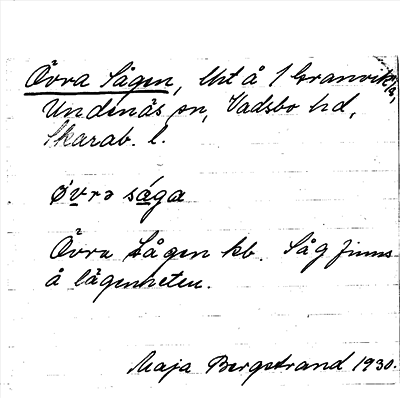 Övra Sågen, lht å 1 Granvik 1/2,
Undenäs sn, Vadsbo hd,
Skarab. l.
ǿvrə sága
Övra Sågen kb. Såg finns
å lägenheten.
Maja Bergstrand 1930.